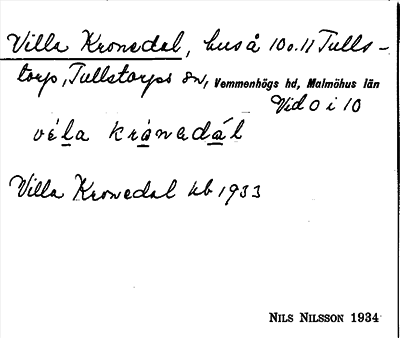 Villa Kronedal, hus å 10 o. 11 Tulls-
torp, Tullstorps sn, Vemmenhögs hd, Malmöhus län
Vid 0 i 10
véla krånedál
Villa Kronedal kb 1933
NILS NILSSON 1934